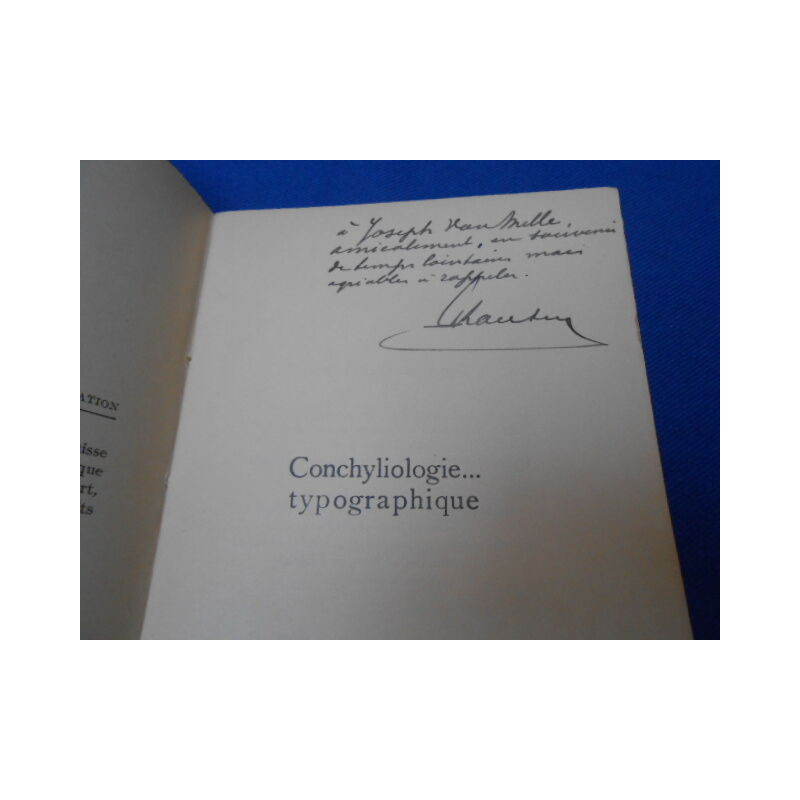 à Joseph Van Melle,
amicalement, en souvenir
de temps lointains mais
agréables à rappeler.
ATION
isse
que
rt,
ts
Conchyliologie...
typographique